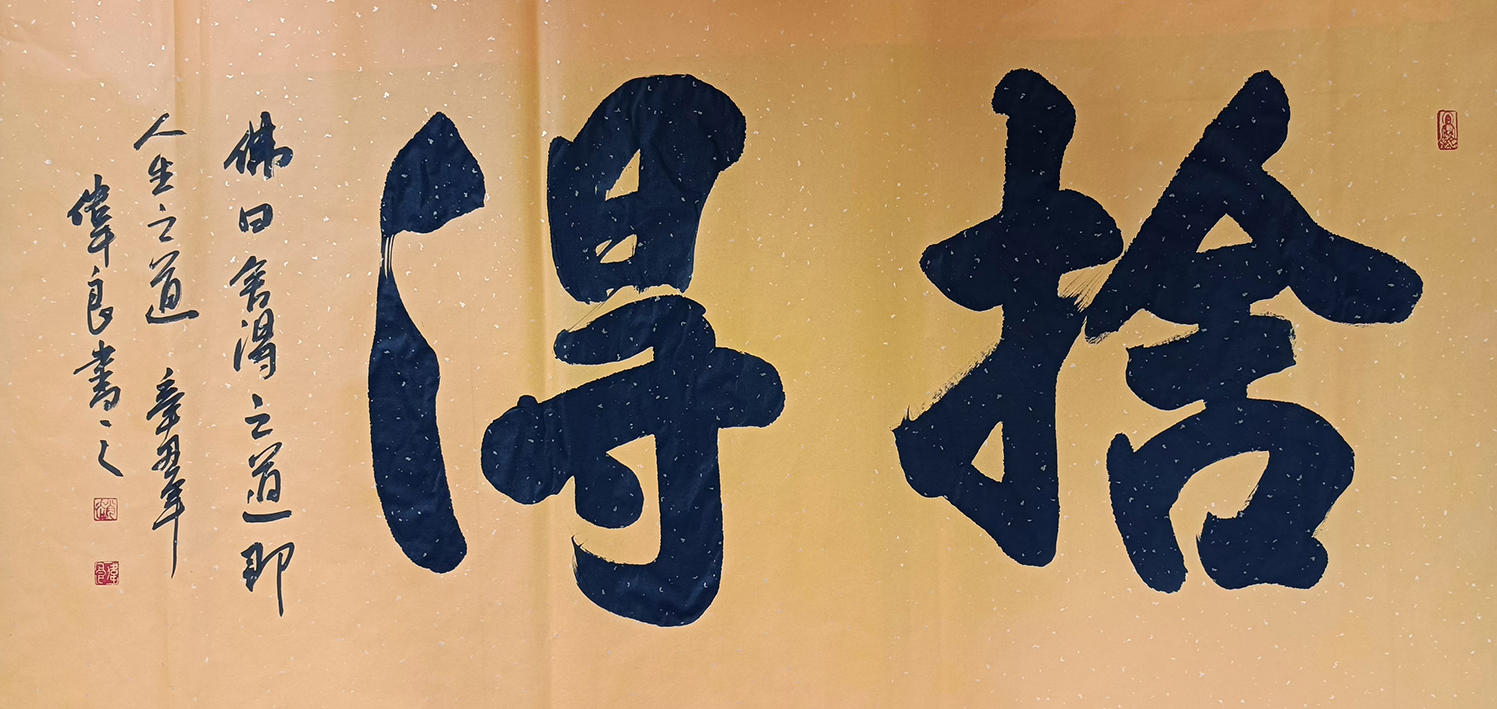 捨得
佛曰舍得之道即
人生之道 辛丑年
偉良書之